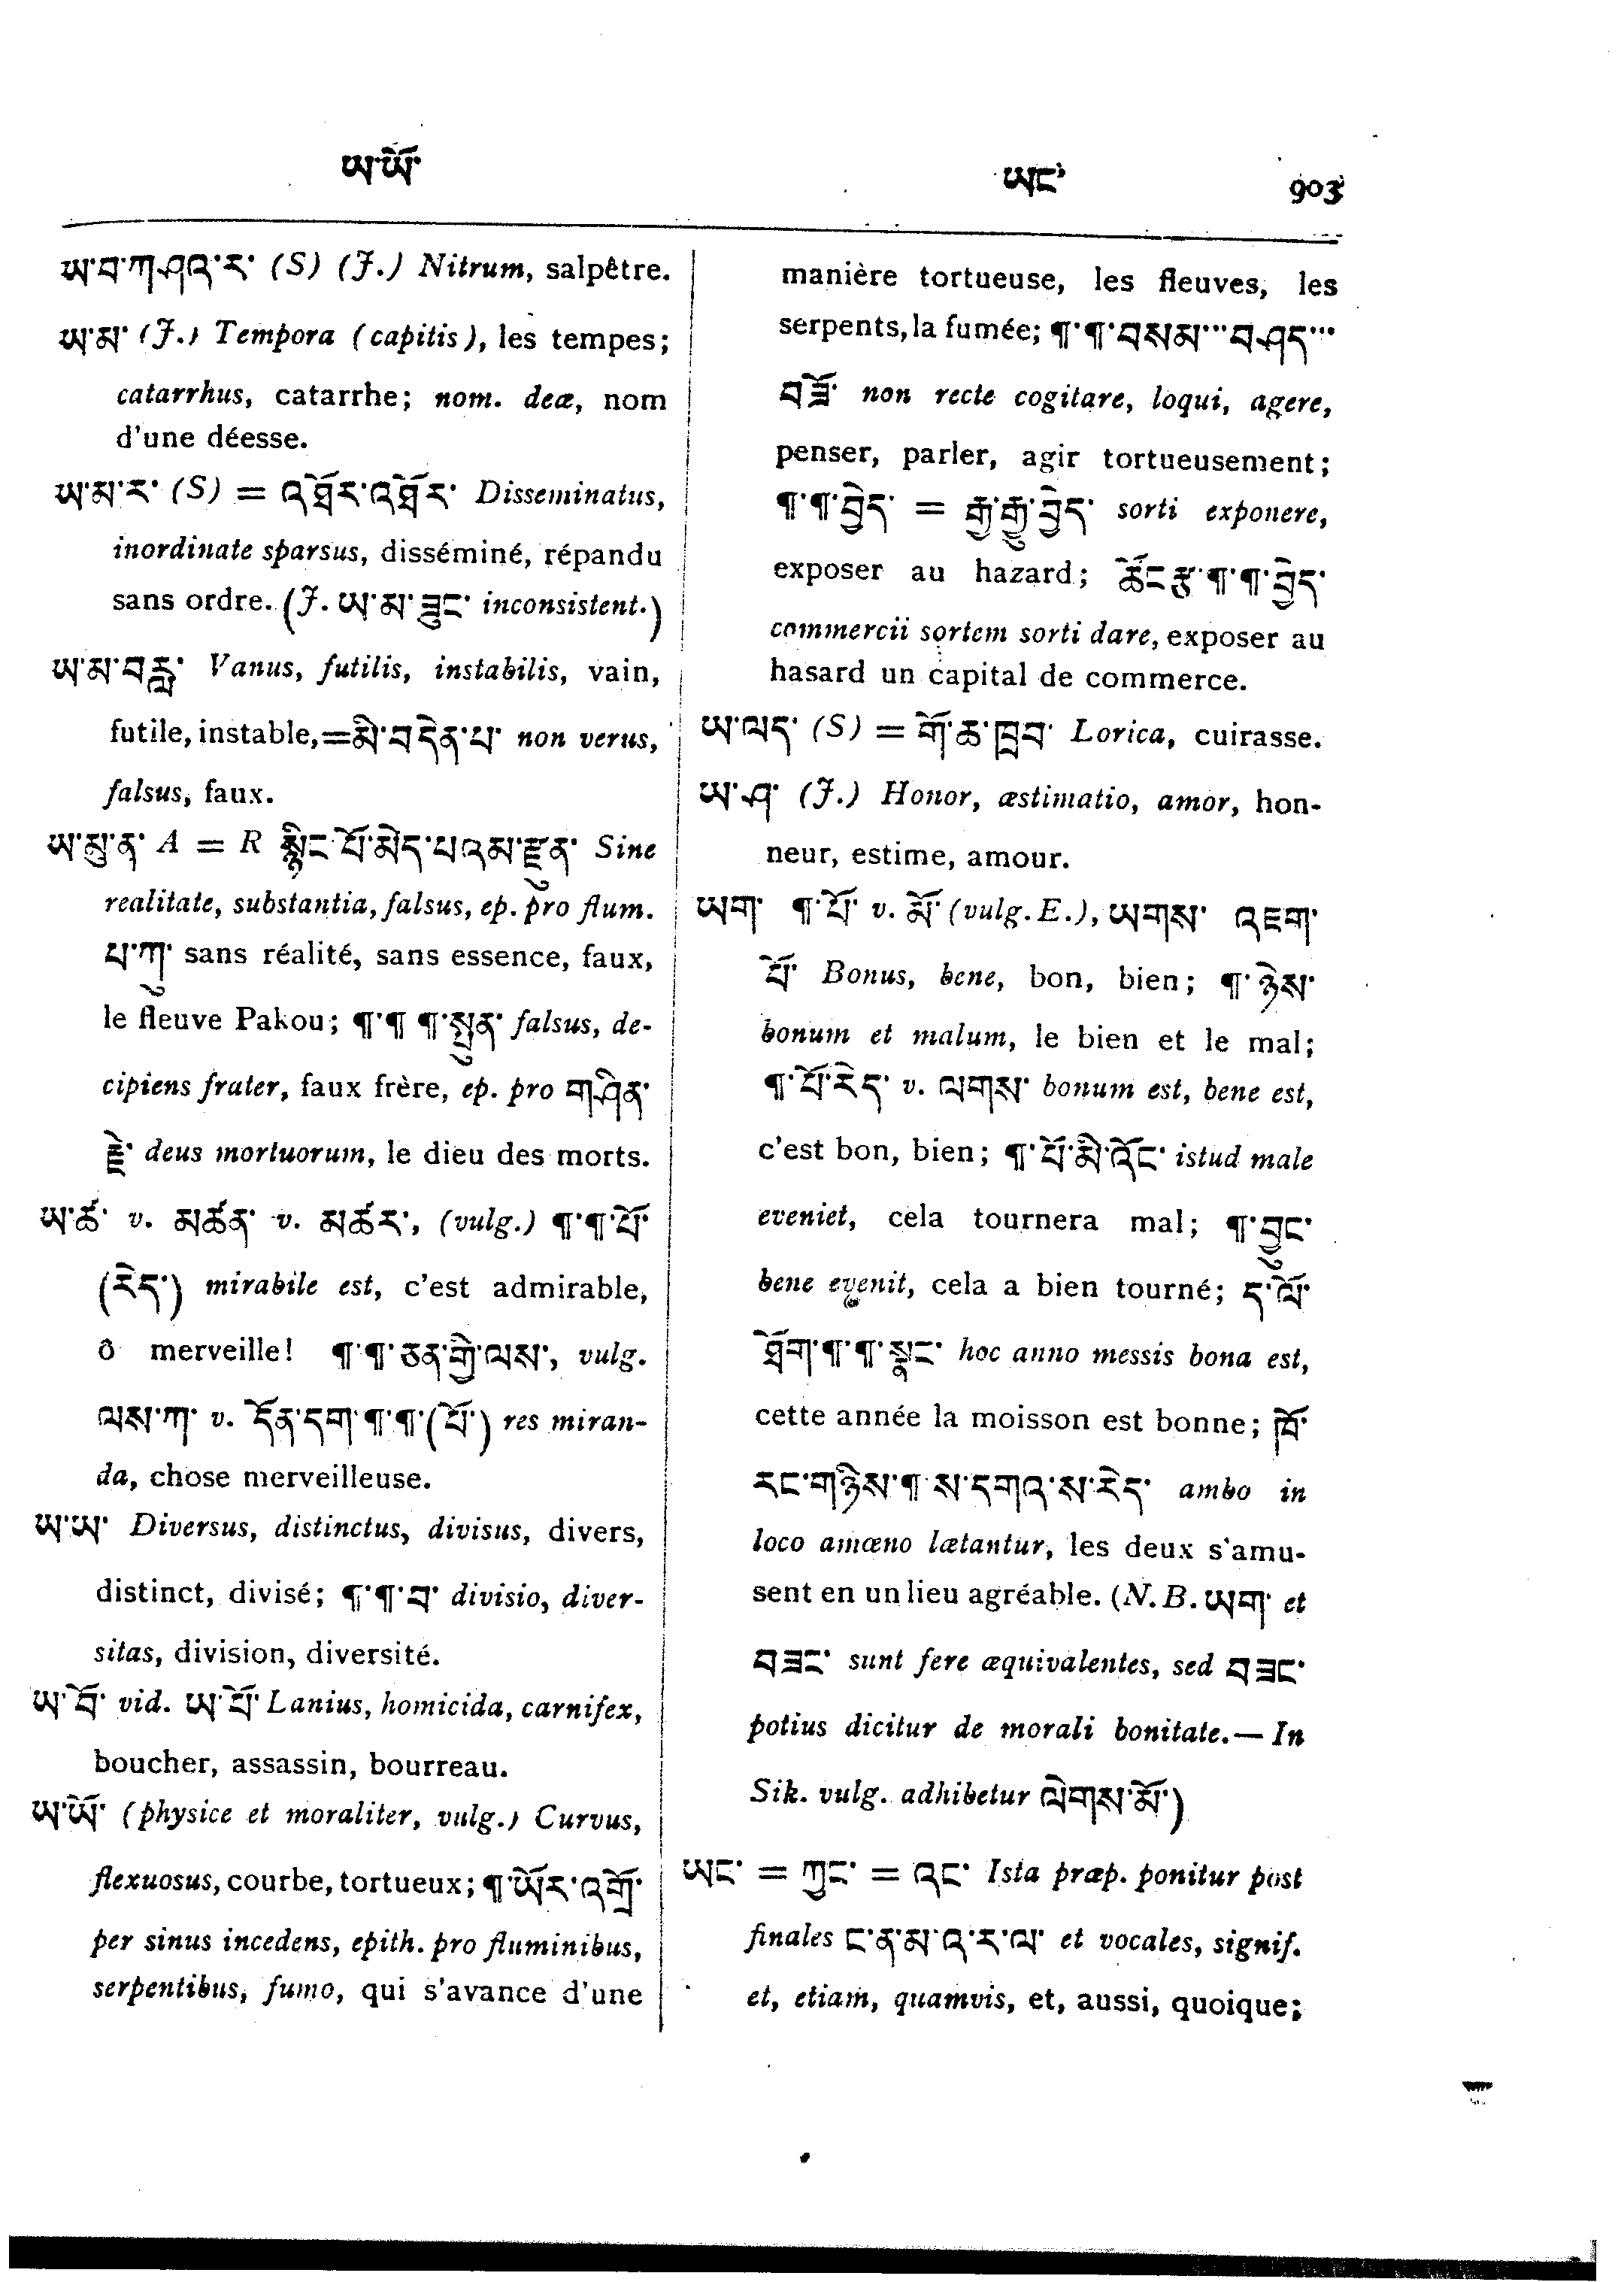 ཡ་ཡོ་
ཡང་ 903
ཡ་བ་ཀཤའ་ར་ (S) (J.) Nitrum, salpêtre.
ཡ་མ་ (J.) Tempora (capitis), les tempes;
catarrhus, catarrhe; nom. deæ, nom
d'une déesse.
ཡ་མ་ར་ (S) = འཐོར་འཐོར་ Disseminatus,
inordinate sparsus, disséminé, répandu
sans ordre. (J. ཡ་མ་ཟུང་ inconsistent.)
ཡ་མ་བརླ་ Vanus, futilis, instabilis, vain,
futile, instable,=མི་བདེན་པ་ non verus,
falsus, faux.
ཡ་མུ་ན་ A = R སྙིང་པོ་མེད་པའམ་རྫུན་ Sine
realitate, substantia, falsus, ep. pro flum.
པ་ཀུ་ sans réalité, sans essence, faux,
le fleuve Pakou; ¶་¶ ¶་སྤུན་ falsus, de-
cipiens frater, faux frère, ep. pro གཤིན་
རྗེ་ deus mortuorum, le dieu des morts.
ཡ་ཚ་ v. མཚན་ v. མཚར་, (vulg.) ¶་¶་པོ་
(རེད་) mirabile est, c'est admirable,
ô merveille! ¶་¶་ཅན་གྱི་ལས་, vulg.
ལས་ཀ་ v. དོན་དག་¶་¶་(པོ་) res miran-
da, chose merveilleuse.
ཡ་ཡ་ Diversus, distinctus, divisus, divers,
distinct, divisé; ¶་¶་བ་ divisio, diver-
sitas, division, diversité.
ཡ་བོ་ vid. ཡ་པོ་ Lanius, homicida, carnifex,
boucher, assassin, bourreau.
ཡ་ཡོ་ (physice et moraliter, vulg.) Curvus,
flexuosus, courbe, tortueux; ¶་ཡོར་འགྲོ་
per sinus incedens, epith. pro fluminibus,
serpentibus, fumo, qui s'avance d'une
manière tortueuse, les fleuves, les
serpents, la fumée; ¶་¶་བསམ་··བཤད་··
བཟོ་ non recte cogitare, loqui, agere,
penser, parler, agir tortueusement;
¶་¶་བྱེད་ = རྒྱ་རྒྱུ་བྱེད་ sorti exponere,
exposer au hazard; ཚོང་རྩ་¶་¶་བྱེད་
commercii sortem sorti dare, exposer au
hasard un capital de commerce.
ཡ་ལད་ (S) = གོ་ཆ་ཁྲབ་ Lorica, cuirasse.
ཡ་ཤ་ (J.) Honor, æstimatio, amor, hon-
neur, estime, amour.
ཡག་ ¶་པོ་ v. མོ་ (vulg. E.), ཡགས་ འཇག་
པོ་ Bonus, bene, bon, bien; ¶་ཉེས་
bonum et malum, le bien et le mal;
¶་པོ་རེད་ v. ལགས་ bonum est, bene est,
c'est bon, bien; ¶་པོ་མི་འོང་ istud male
eveniet, cela tournera mal; ¶་བྱུང་
bene evenit, cela a bien tourné; ད་ལོ་
ཐོག་¶་¶་སྣང་ hoc anno messis bona est,
cette année la moisson est bonne; ཁོ་
རང་གཉིས་¶་ས་དགའ་ས་རེད་ ambo in
loco amœno lætantur, les deux s'amu-
sent en un lieu agréable. (N. B. ཡག་ et
བཟང་ sunt fere æquivalentes, sed བཟང་
potius dicitur de morali bonitate.— In
Sik. vulg. adhibetur ལེགས་མོ་)
ཡང་ = ཀྱང་ = འང་ Ista præp. ponitur post
finales ང་ན་མ་འ་ར་ལ་ et vocales, signif.
et, etiam, quamvis, et, aussi, quoique;